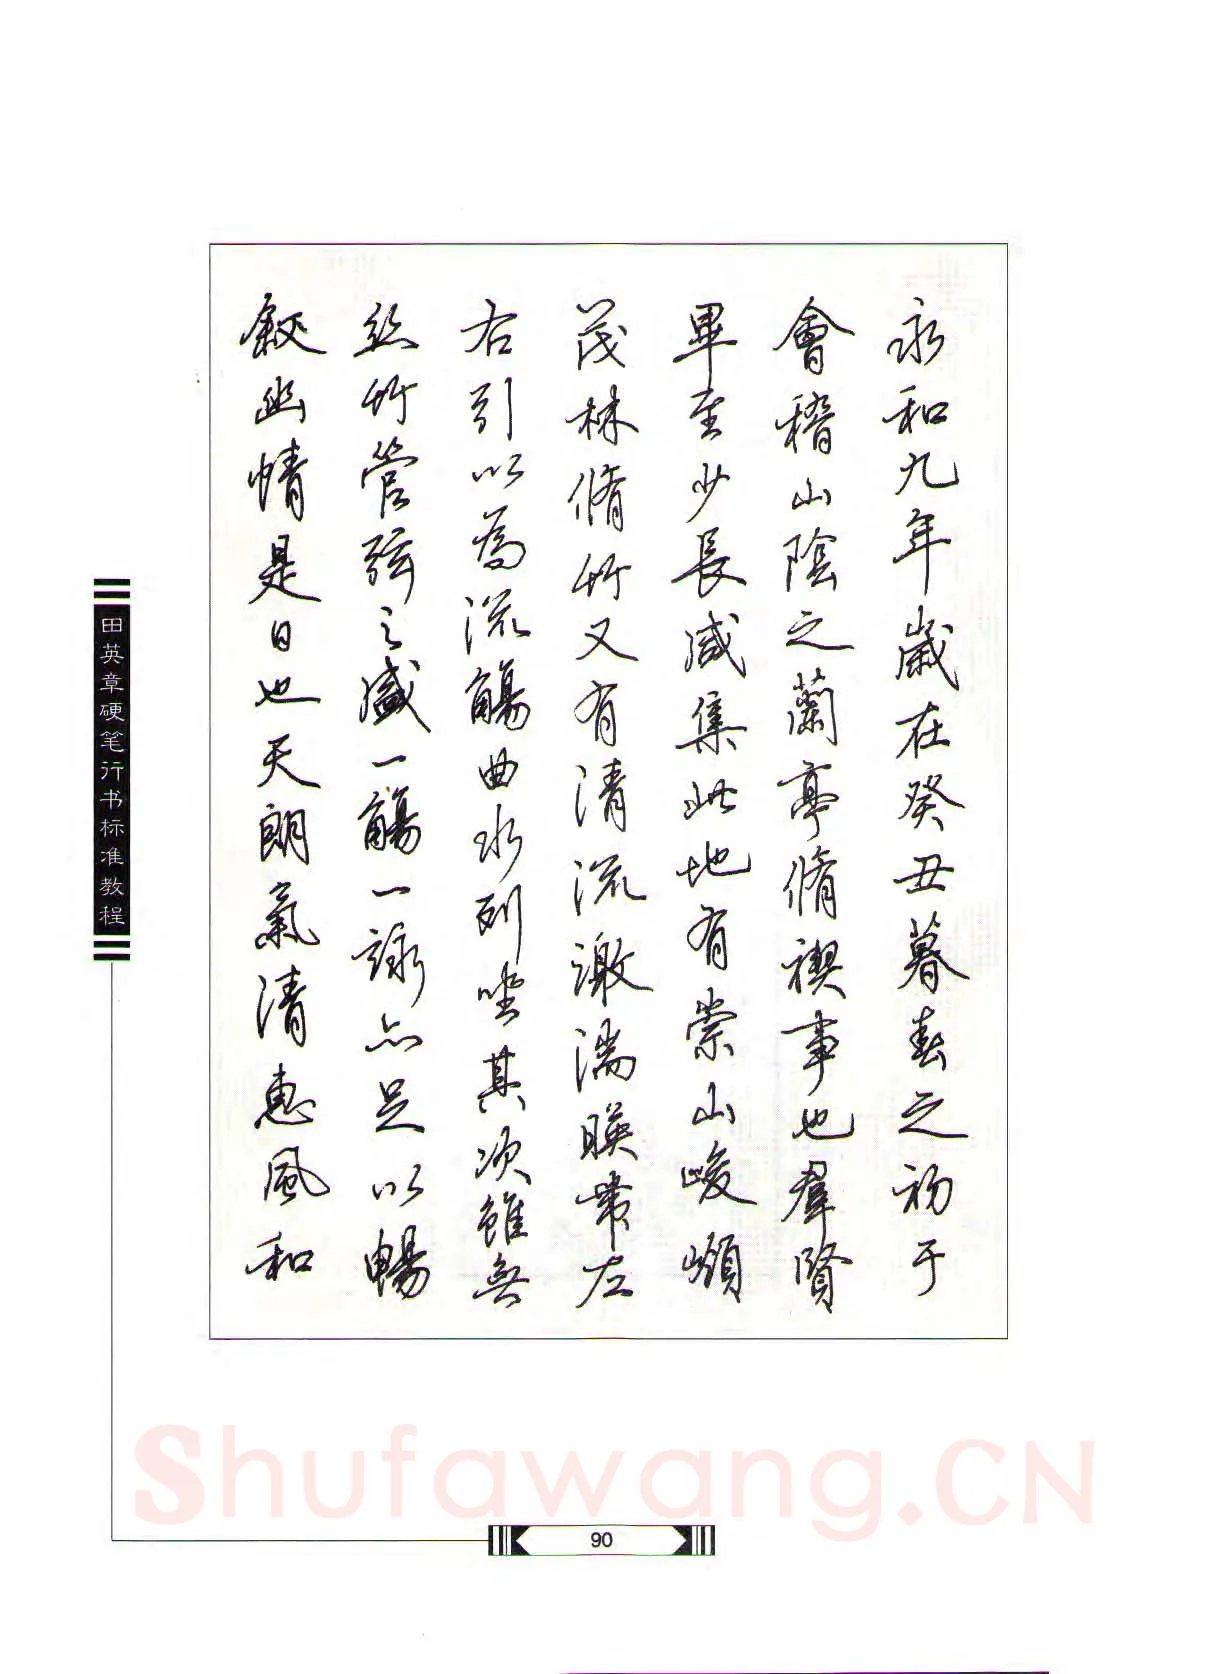 永和九年歲在癸丑暮春之初于
會稽山陰之蘭亭脩禊事也羣賢
畢至少長咸集此地有崇山峻嶺
茂林脩竹又有清流激湍暎帶左
右引以為流觴曲水列坐其次雖無
絲竹管弦之盛一觴一詠亦足以暢
敘幽情是日也天朗氣清惠風和
田英章硬笔行书标准教程
Shufawang.CN
90